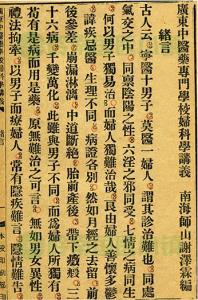 廣東中醫藥專門學校婦科學講義
緒言
南海師山謝澤霖編
古人云。甯醫十男子。莫醫一婦人。謂其診治難也。同處
氣交之中。同稟陰陽之性。六淫之邪同受。七情之病同生
何以男子獨易治。而婦人獨難治哉。良由婦人善懷多鬱
諱疾忌醫。生理不同。病證各別。然如月經之去留。前
後參差。崩漏淋濁。中道斷絕。胎前產後。帶下癥瘕。三
十六病。千變萬化。此雖與男子不同。而為婦人所獨有
苟有是病而用是藥。原無難治之可言。無如男女異性
禮法拘牽。以男子而療婦人。常有隱疾難言。隱情難告
緒言